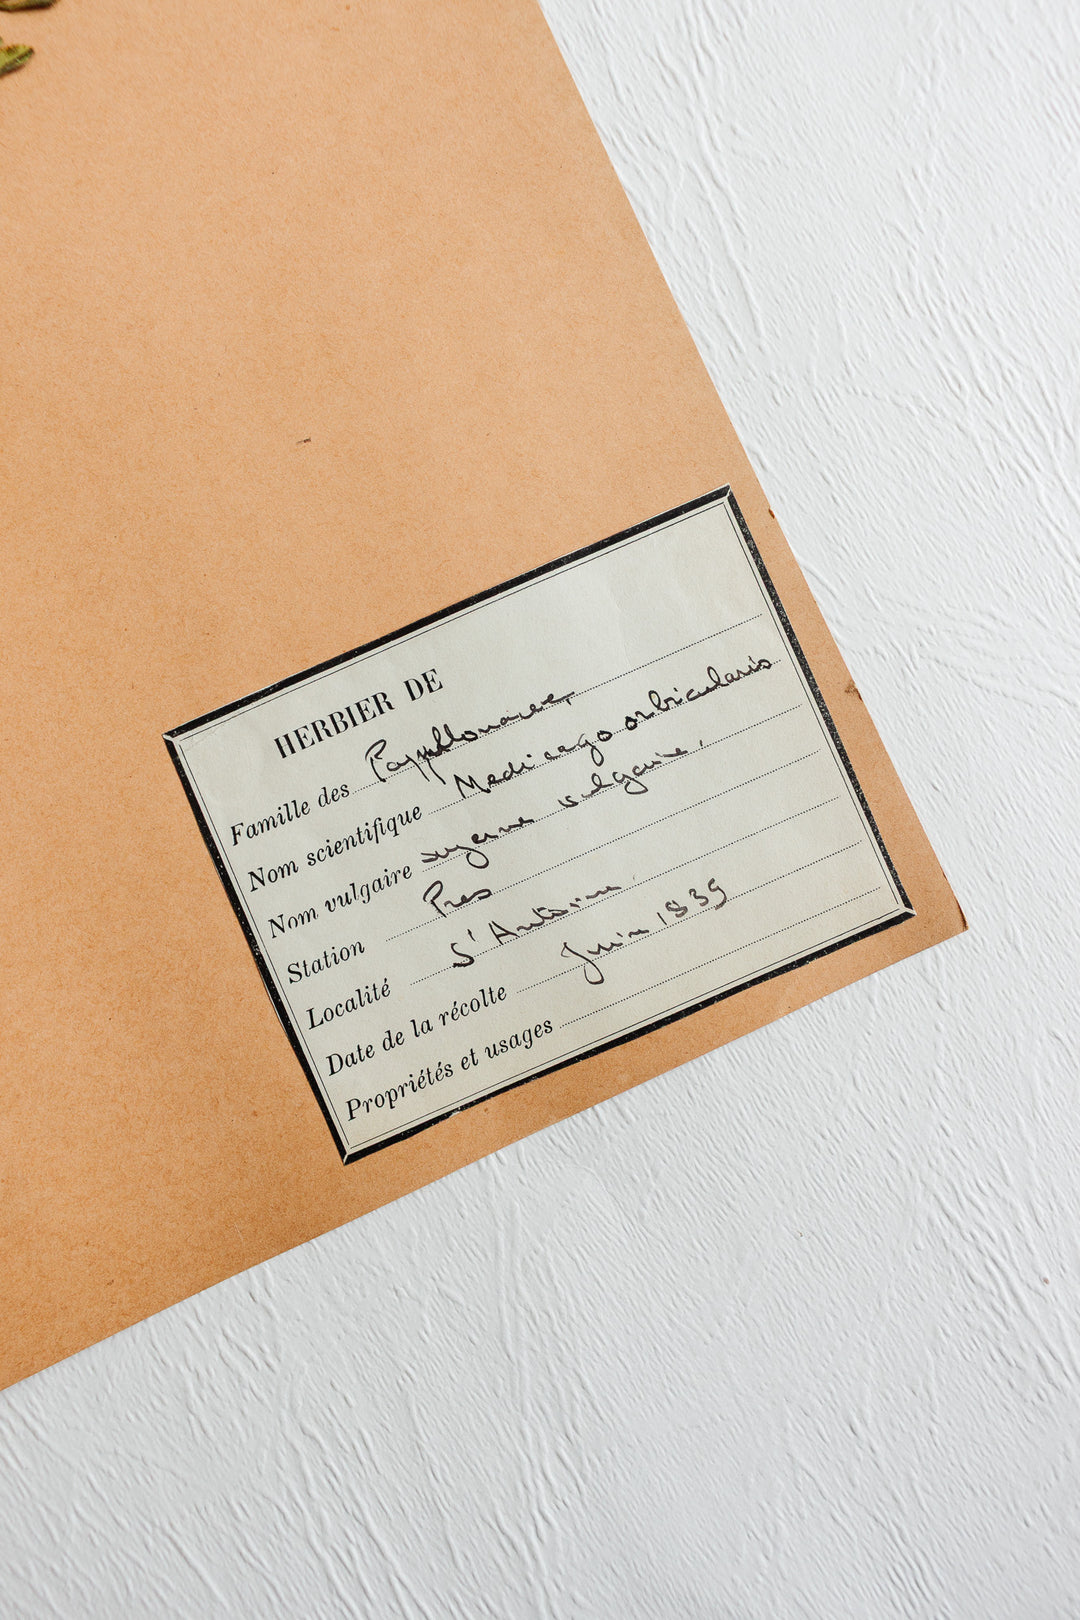 HERBIER DE
Famille des Papillonacee
Nom scientifique Medicago orbicularis
Nom vulgaire vulgaire.
Station Pres
Localité St Antoine
Date de la récolte Juin 1839
Propriétés et usages